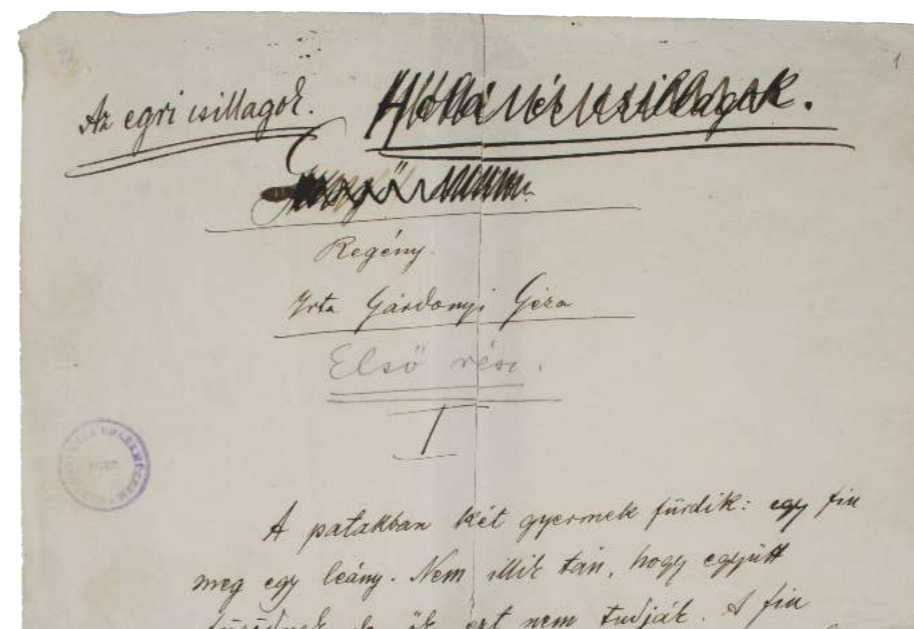 1
Az egri csillagok.
Regény.
Irta Gárdonyi Géza
Első rész.
I
A patakban két gyermek fürdik: egy fiu
meg egy leány. Nem illik tán, hogy együtt
fürödnek, de ők ezt nem tudják. A fiu